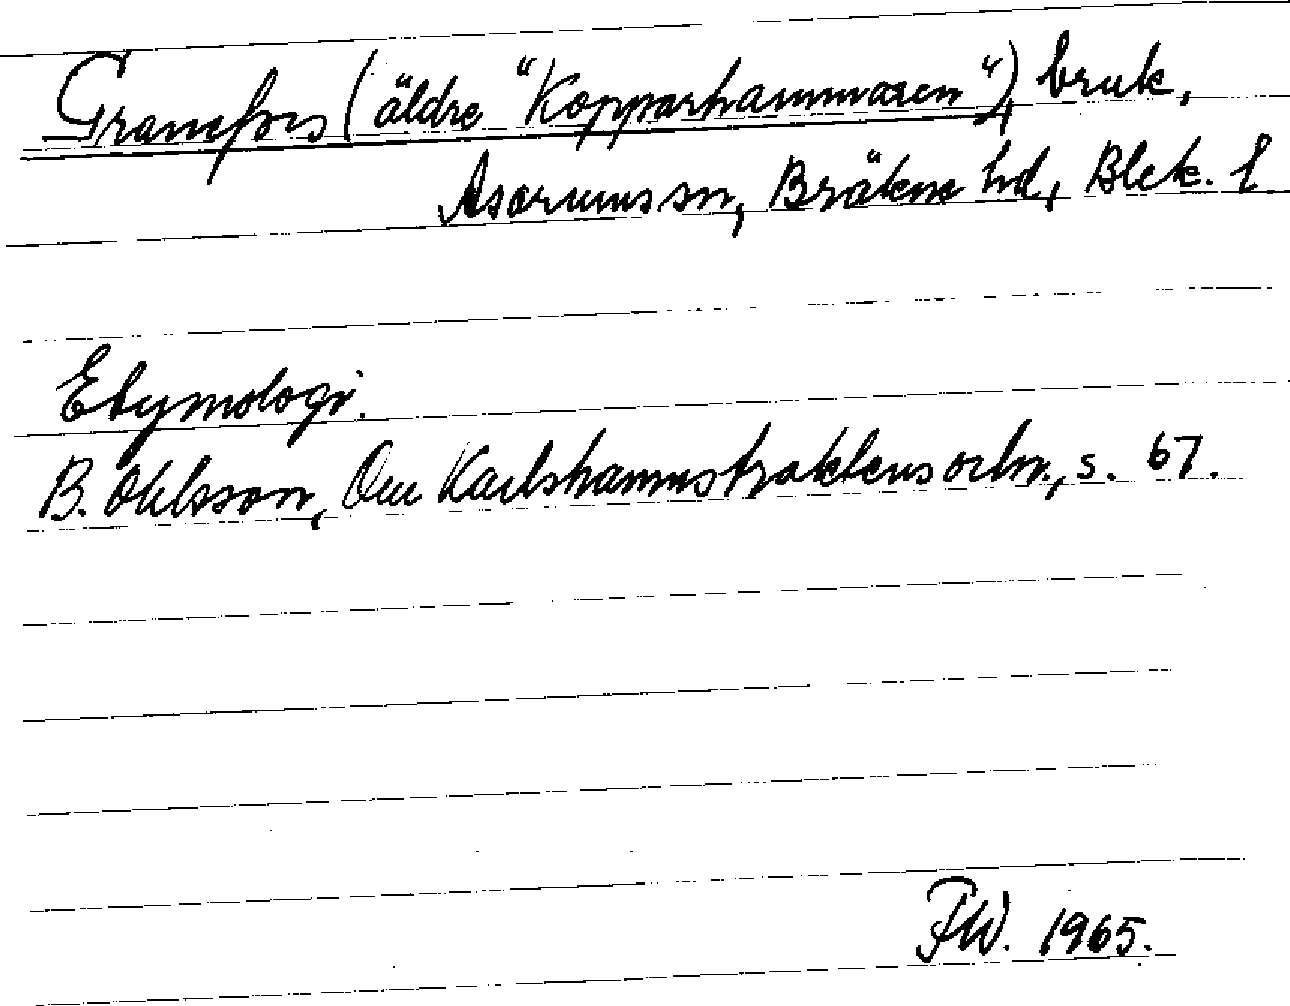 Granefors (äldre "Kopparhammaren"), bruk,
Asarums sn, Bräkne hd, Blek. l
Etymologi.
B. Ohlsson, Om Karlshamnstraktens ortn., s. 67.
FW. 1965.